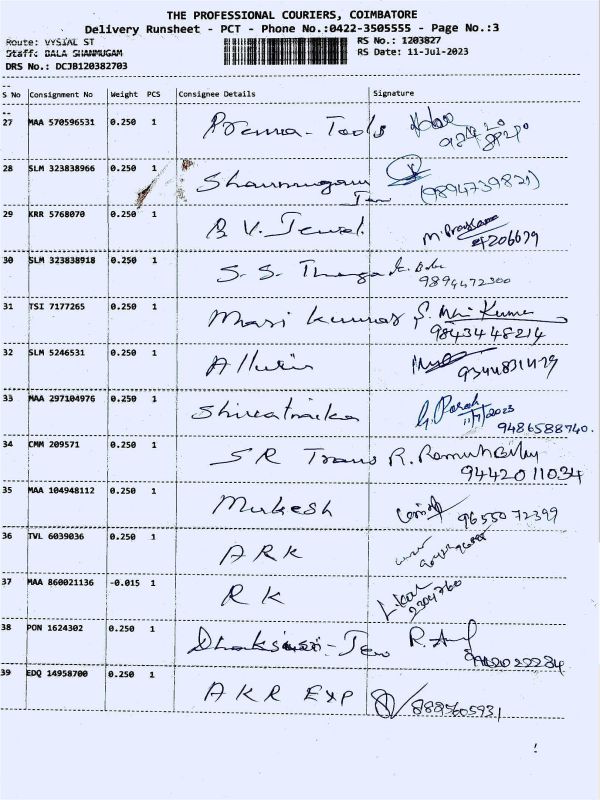 THE PROFESSIONAL COURIERS, COIMBATORE
Delivery Runsheet - PCT - Phone No.:0422-3505555 - Page No.:3
Route: VYSIAL ST RS No.: 1203827
Staff: BALA SHANMUGAM RS Date: 11-Jul-2023
DRS No.: DCJB120382703
S No Consignment No Weight PCS Consignee Details Signature
27 MAA 570596531 0.250 1 Prema - Tools
28 SLM 323838966 0.250 1 Shanmugam (9894739821)
29 KRR 5768070 0.250 1 B V. Jewel.
30 SLM 323838918 0.250 1 S. S. Thanga 9894472300
31 TSI 7177265 0.250 1 Mani kumar S. Mani Kumar
9843448214
32 SLM 5246531 0.250 1 9344831429
33 MAA 297104976 0.250 1 11/7/2023
9486588740.
34 CMM 209571 0.250 1 SR Trans R.
9442011034
35 MAA 104948112 0.250 1 Mukesh 9655072399
36 TVL 6039036 0.250 1 ARK
37 MAA 860021136 -0.015 1 RK
2204760
38 PON 1624302 0.250 1
39 EDQ 14958700 0.250 1 AKR EXP 8885605931